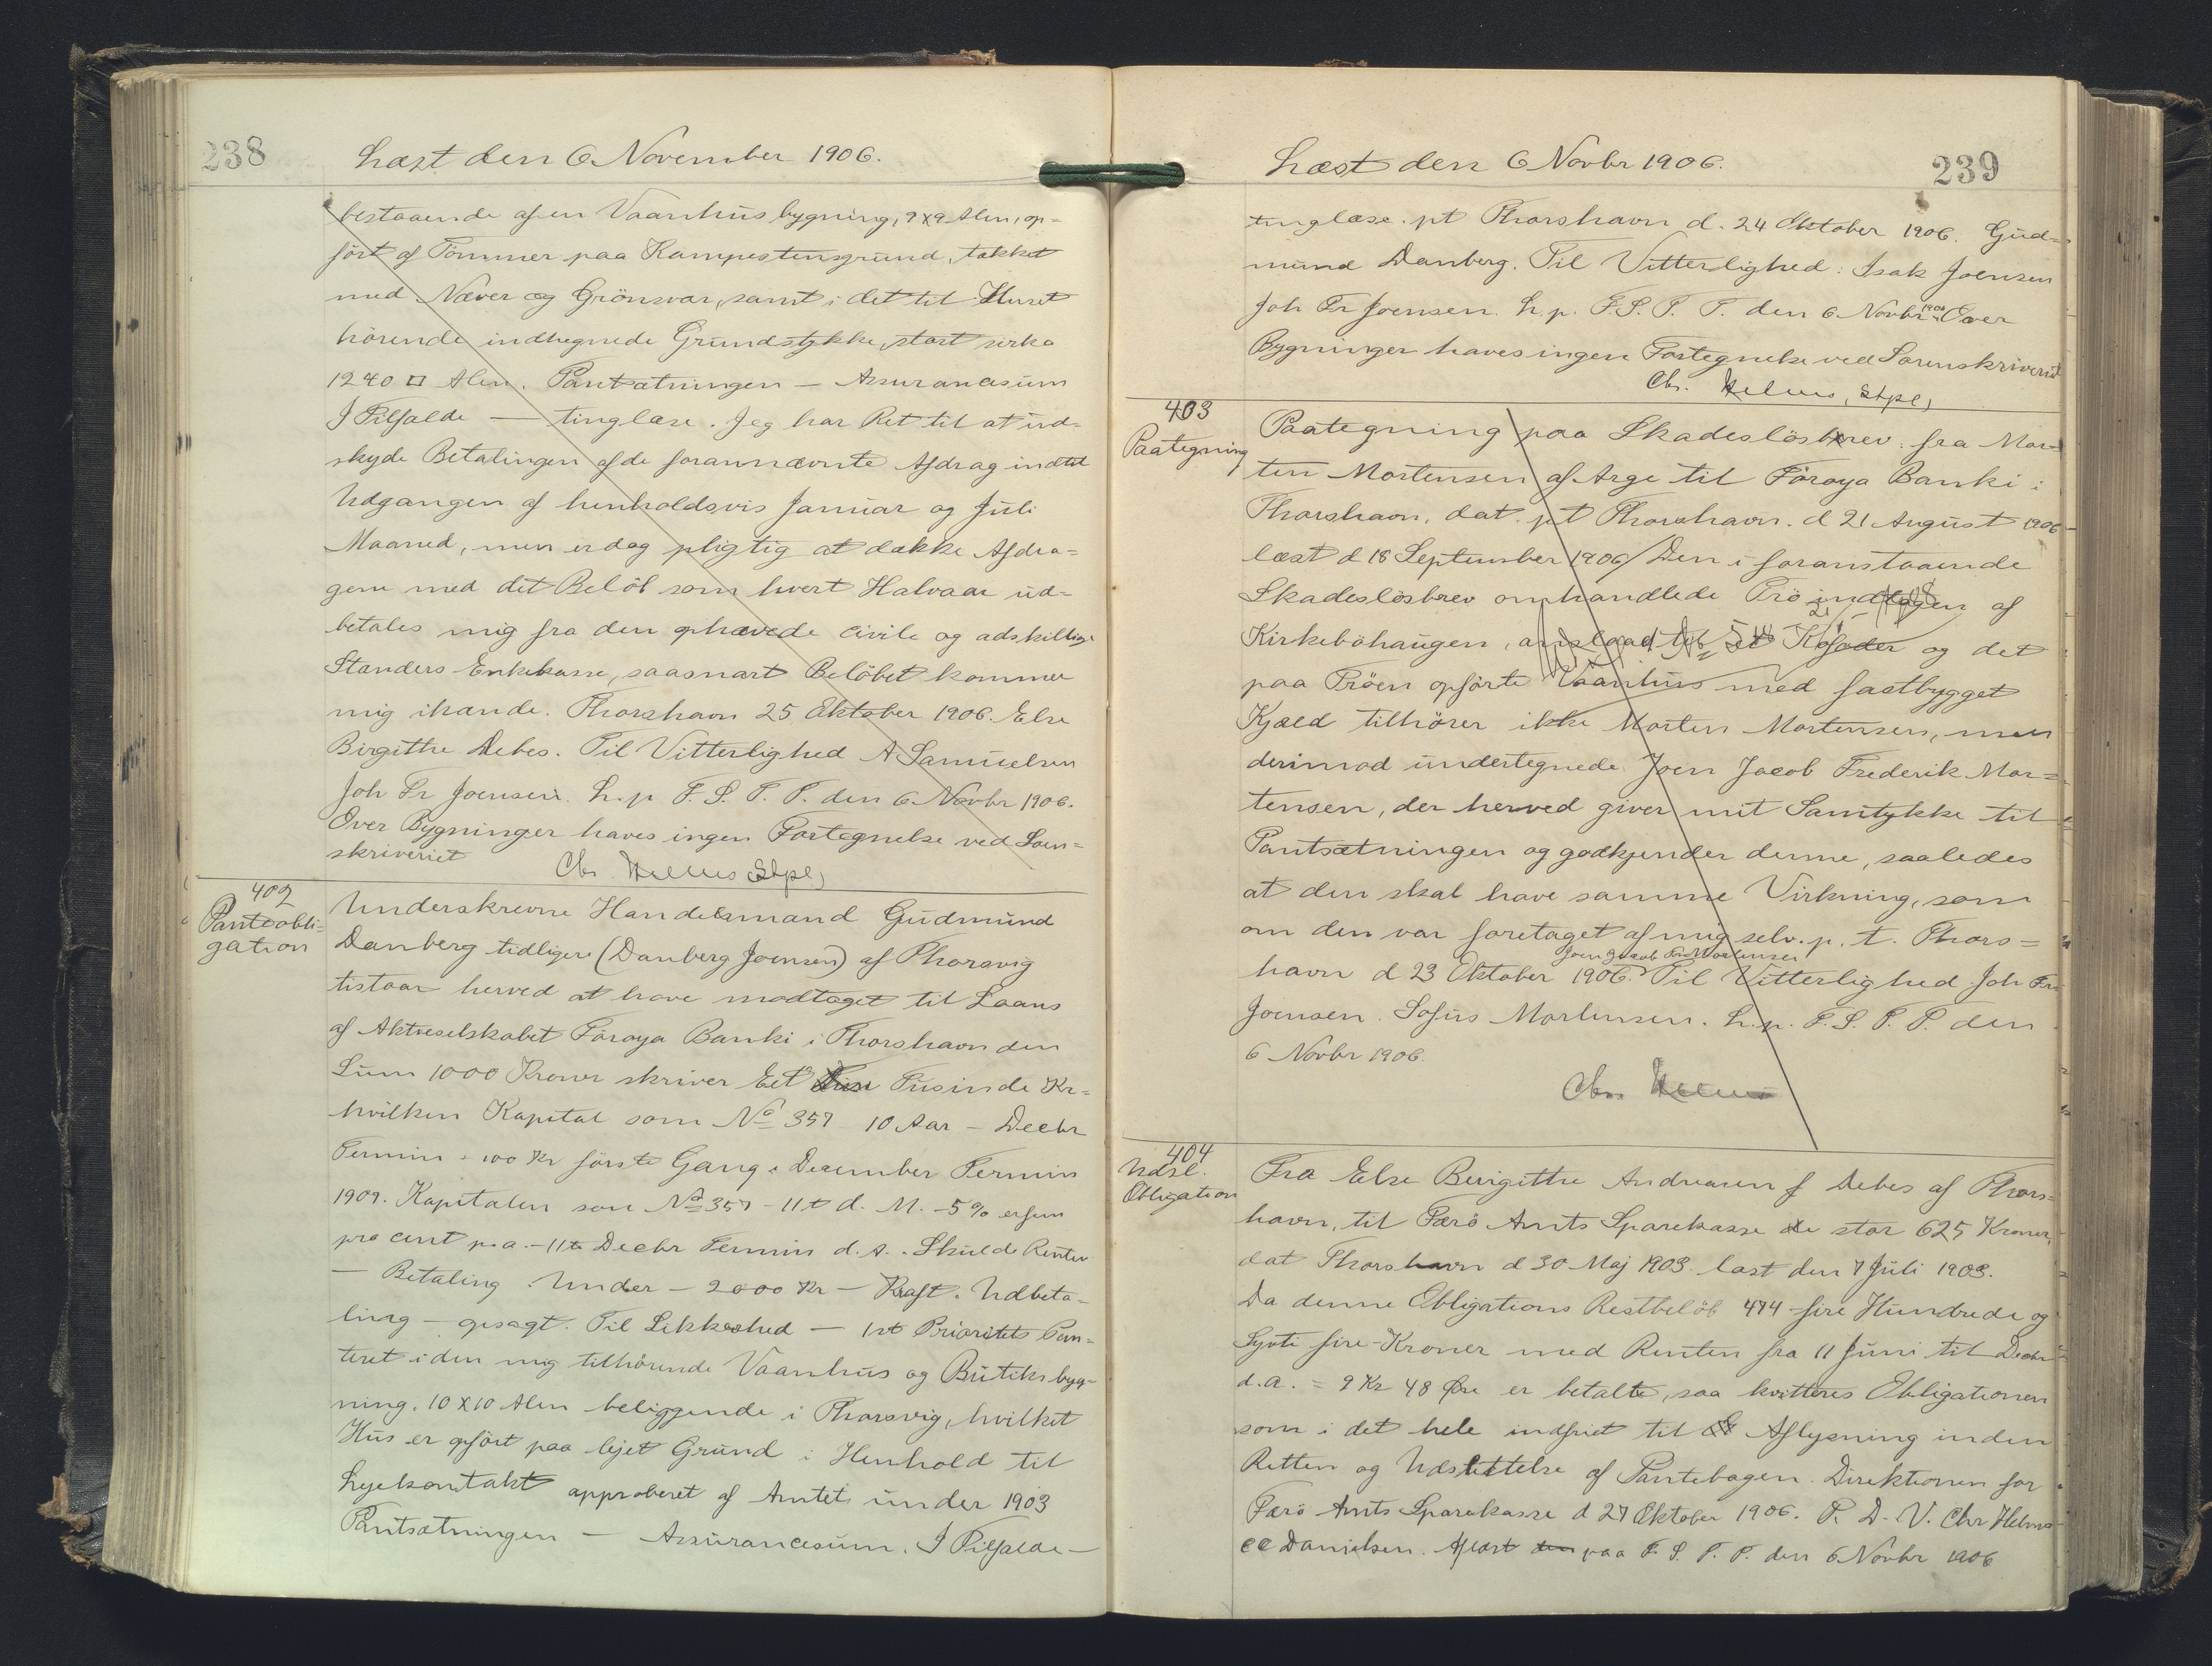 238
Læst den 6 November 1906.
bestaaende af en Vaanhus bygning, 9x9 Alen, op-
ført af Tømmer paa Kampestensgrund, tækket
med Næver og Grønsvær, samt i det til Huset
hørende indhegnede Grundstykke, stort cirka
1240 □ Alen. Pantsætningen — Assurancesum
I Tilfælde — tinglæse. Jeg har Ret til at ud-
skyde Betalingen af de forannævnte Afdrag indtil
Udgangen af henholdsvis Januar og Juli
Maaned, men er dog pligtig at dække Afdra-
gene med det Beløb som hvert Halvaar ud-
betales mig fra den ophævede civile og adskillige
Standers Enkekasse, saasnart Beløbet kommer
mig ihænde. Thorshavn 25 Oktober 1906. Else
Birgithe Debes. Til Vitterlighed A Samuelsen
Joh Fr Joensen. L. p. F. S. T. P. den 6 Novbr 1906.
Over Bygninger haves ingen Fortegnelse ved Soren-
skriveriet
Chr. Helms Stpl)
402
Panteobli-
gation
Underskrevne Handelsmand Gudmund
Danberg tidligere (Danberg Joensen) af Thorsvig
tistaar herved at have modtaget til Laans
af Aktieselskabet Føroya Banki i Thorshavn den
Sum 1000 Kroner skriver Eet Tusinde Kr-
hvilken Kapital som No 357 10 Aar – Decbr
Termin + 100 Kr første Gang i December Termin
1907. Kapitalen som No 357 – 11te d. M. – 5% erfem
pro cent p. a. – 11te Decbr Termin d. A. . Skulde Renten
— Betaling . Under – 2000 Kr – Kraft . Udbeta-
ling – gesagt. Til Sikkerhed — 1st Prioritets Pan-
teret i den mig tilhørende Vaanhus og Butiks byg-
ning. 10 x 10 Alen beliggende i Thorsvig, hvilket
Hus er opført paa lejet Grund i Henhold til
Lejekontrakt approberet af Amtet under 1903
Pantsætningen — Assurancesum. I Tilfælde —
239
Læst den 6 Novbr 1906.
tinglæse. pt Thorshavn d. 24 Oktober 1906. Gud-
mund Danberg. Til Vitterlighed: Isak Joensen
Joh Fr Joensen. L. p. F. S. T. P. den 6 Novbr 1906 Over
Bygninger haves ingen Fortegnelse ved Sorenskriveriet
Chr. Helms, Stpl)
403
Paategning
Paategning paa Skadesløsbrev: fra Mor-
ten Mortensen af Arge til Føroya Banki i
Thorshavn, dat. pt Thorshavn. d 21 August 1906
læst d 18 September 1906/ Den i foranstaaende
Skadesløsbrev omhandlede Trø indtagen af
Kirkebøhaugen, og det
paa Trøen opførte Vaanhus med fastbygget
Kjæld tilhører ikke Morten Mortensen, men
derimod undertegnede Joen Jacob Frederik Mor-
tensen, der herved giver mit Samtykke til
Pantsætningen og godkjender denne, saaledes
at den skal have samme Virkning, som
om den var foretaget af mig selv. p. t. Thors-
havn d 23 Oktober 1906. Joen Jacob Fr Mortensen Til Vitterlighed Joh Fr.
Joensen. Sofus Mortensen. L. p. F. S. T. P. den
6 Novbr 1906.
Chr. Helms
404
Udsl.
Obligation
Fra Else Birgithe Andreasen f Debes af Thors-
havn, til Færø Amts Sparekasse de stor 625 Kroner,
dat Thorshavn d 30 Maj 1903 læst den 7 Juli 1903.
Da denne Obligations Restbeløb 474 fire Hundrede og
Syvti fire Kroner med Renten fra 11 Juni til Decbr
d. a. = 9 Kr 48 Øre er betalte, saa kvitteres Obligationen
som i det hele indfriet til Aflysning inden
Retten og Udslettelse af Pantebogen. Direktionen for
Færø Amts Sparekasse d 27 Oktober 1906. P. D. V. Chr Helms
CC Danielsen. Aflæst den paa F. S. T. P. den 6 Novbr 1906